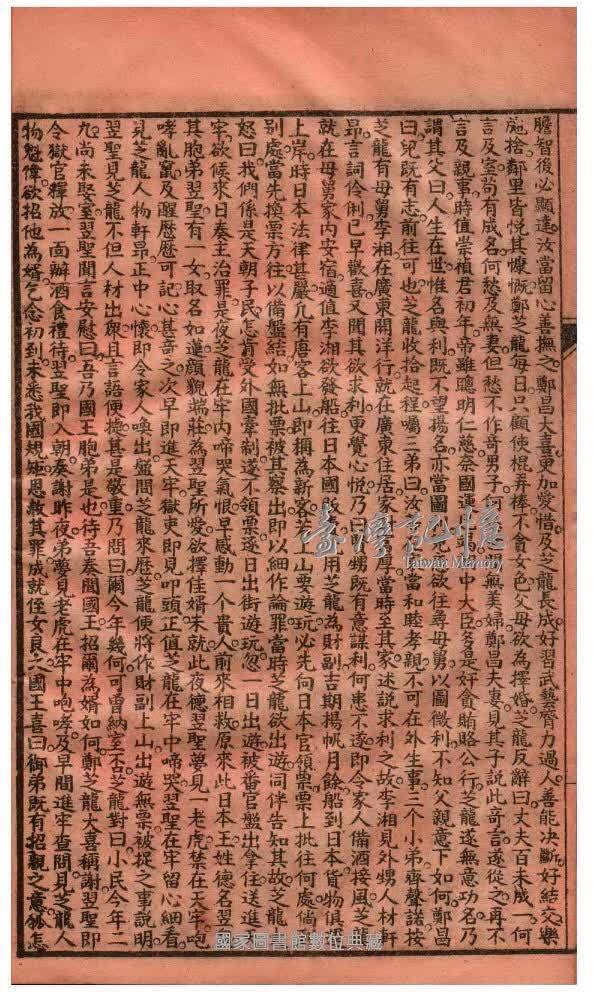 膽智後必顯達汝當留心善撫之鄭昌大喜更加愛惜及芝龍長成好習武藝膂力過人善能決斷好結交樂
施捨鄰里皆悅其慷慨鄭芝龍每日只顧使棍弄棒不貪女色父母欲為擇婚芝龍反辭曰丈夫百未成一何
言及室苟有成名何愁及無妻但愁不作奇男子何 無美婦鄭昌夫妻見其子說此奇言遂從之再不
言及親事時值崇禎君初年帝雖聰明仁慈奈國運 中大臣多是奸貪賄賂公行芝龍遂無意功名乃
謂其父曰人生在世惟名與利既不望揚名亦當圖 兒欲往尋母舅以圖微利不知父親意下如何鄭昌
曰兒既有志前往可也芝龍收拾起程囑三弟曰汝 當和睦孝親不可在外生事三个小弟齊聲諾按
芝龍有母舅李湘在廣東開洋行就在廣東住居家 厚當時至其家述說求利之故李湘見外甥人材軒
昂言詞伶俐已早歡喜又聞其欲求利更覺心悅乃曰 甥既有意謀利何患不遂即令家人備酒接風芝龍
就在母舅家內安宿適值李湘欲發船往日本國販 用芝龍為財副吉期揚帆月餘船到日本貨物俱
上岸時日本法律甚嚴凡有唐客上山即稱為新客若上山要遊玩必先向日本官領票票上批往何處倘
別處當先換票方往以備盤結如無批票被其察出即以細作論罪當時芝龍欲出遊同伴告知其故芝龍
怒曰我們係是天朝子民怎肯受外國韋制遂不領票逐日出街遊玩忽一日出遊被番官盤出拿住送進
牢欲候來日奏主治罪是夜芝龍在牢內啼哭氣恨早感動一个貴人前來相救原來此日本王姓德名翌
其胞弟翌聖有一女取名如蓮顏貌端莊為翌聖所愛欲擇佳婿未就此夜德翌聖夢見一老虎禁在天牢咆
哮亂竄及醒歷歷可記心甚奇之次早即進天牢獄吏即見叩頭正值芝龍在牢中啼哭翌聖在牢留心細看
見芝龍人物軒昂正中心懷即令家人喚出盤問芝龍來歷芝龍便將作財副上山出遊無票被捉之事說明
翌聖見芝龍不但人材出眾且言語便捷甚是敬重乃問曰爾今年幾何可曾納室否芝龍對曰小民今年二
九尚未娶室翌聖聞言安慰曰吾乃國王胞弟是也待吾奏聞國王招爾為婿如何鄭芝龍大喜稱謝翌聖即
令獄官釋放一面辦酒食禮待翌聖即入朝奏謝昨夜弟夢見老虎在牢中咆哮及早間進牢查問見芝龍人
物魁偉欲招他為婿乞念初到未悉我國規矩恩赦其罪成就侄女良之國王喜曰御弟既有招親之意 怎
臺灣記憶
Taiwan Memory
國家圖書館數位典藏